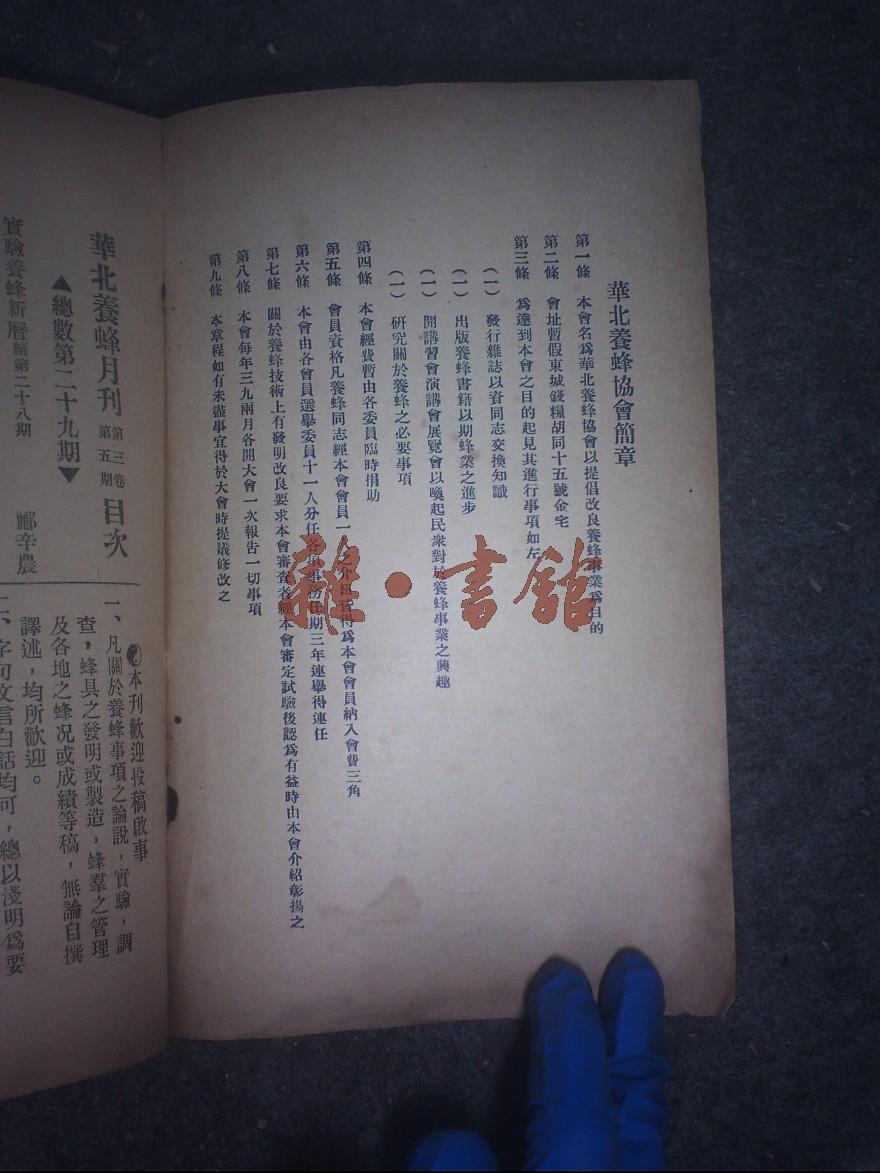 華北養蜂協會簡章
第一條　本會名爲華北養蜂協會以提倡改良養蜂事業爲目的
第二條　會址暫假東城錢糧胡同十五號金宅
第三條　爲達到本會之目的起見其進行事項如左
(一)　發行雜誌以資同志交換知識
(一)　出版養蜂書籍以期蜂業之進步
(一)　開講習會演講會展覽會以喚起民衆對於養蜂事業之興趣
(一)　研究關於養蜂之必要事項
第四條　本會經費暫由各委員臨時捐助
第五條　會員資格凡養蜂同志經本會會員一人之介紹皆得爲本會會員納入會費三角
第六條　本會由各會員選舉委員十一人分任各項事務任期三年連舉得連任
第七條　關於養蜂技術上有發明改良要求本會審查者經本會審定試驗後認爲有益時由本會介紹彰揚之
第八條　本會每年三九兩月各開大會一次報告一切事項
第九條　本章程如有未盡事宜得於大會時提議修改之
雜·書館
華北養蜂月刊 第三卷 第五期 目次
▲總數第二十九期▼
實驗養蜂新曆 續第二十八期　酈辛農
本刊歡迎投稿啟事
一、凡關於養蜂事項之論說，實驗，調
查，蜂具之發明或製造，蜂羣之管理
及各地之蜂況或成績等稿，無論自撰
譯述，均所歡迎。
二、字句文言白話均可，總以淺明爲要